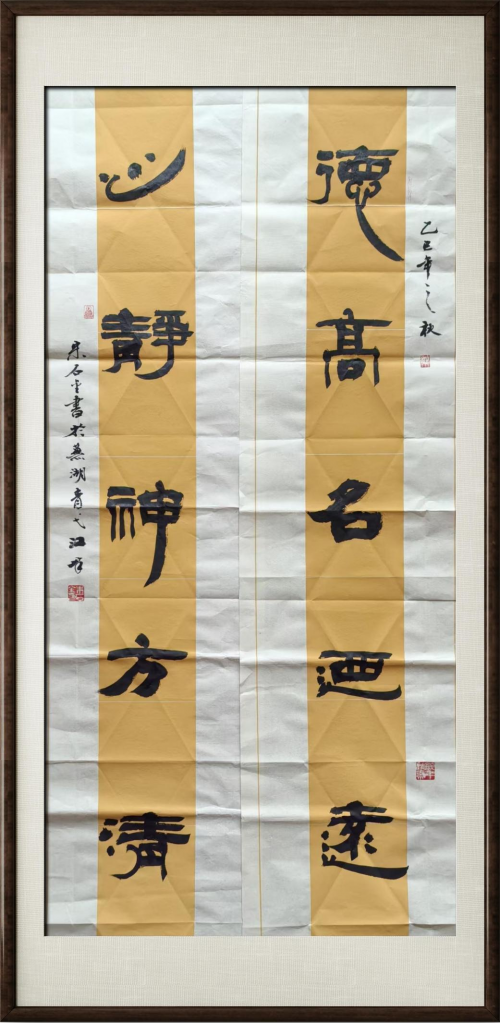 德高名迺遠
乙巳年之秋
心靜神方清
宋石生書於蕪湖青弋江畔